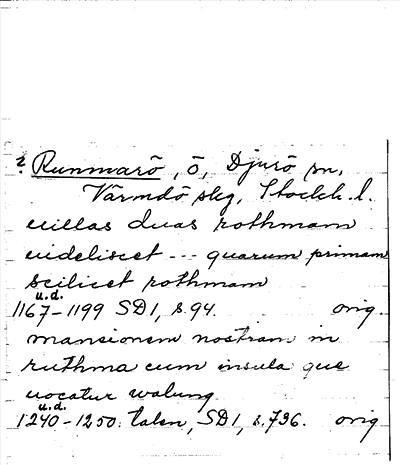 ? Runmarö, ö, Djurö sn,
Värmdö skg, Stockh. l.
uillas duas rothmam
uideliscet --- quarum primam
scilicet rothmam
u.d.
1167-1199 SD1, s.94. orig.
mansionem nostram in
ruthma cum insula que
uocatur walung
u.d.
1240-1250. talen, SD1, s.736. orig